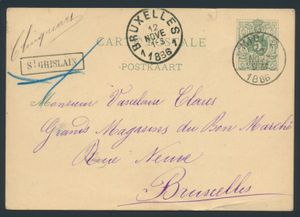 BRUXELLES
12
NOVE
1886
CARTE POSTALE
POSTKAART
5
1886
ST GHISLAIN
Monsieur Vaxelaire Claes
Grands Magasins du Bon Marché
Rue Neuve
Bruxelles